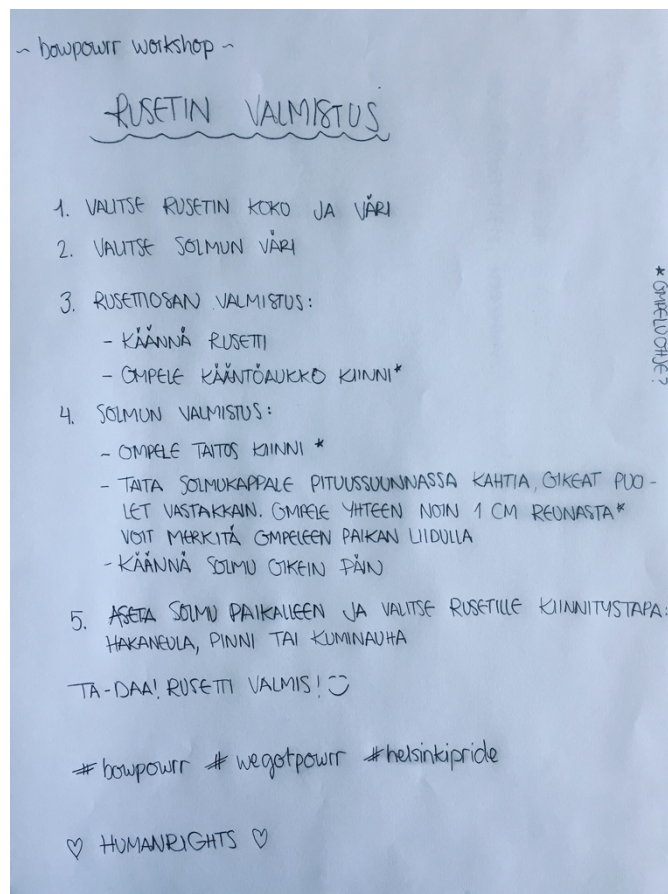 ~ bowpowrr workshop ~
RUSETIN VALMISTUS
1. VALITSE RUSETIN KOKO JA VÄRI
2. VALITSE SOLMUN VÄRI
3. RUSETTIOSAN VALMISTUS:
- KÄÄNNÄ RUSETTI
- OMPELE KÄÄNTÖAUKKO KIINNI*
4. SOLMUN VALMISTUS:
- OMPELE TAITOS KIINNI *
- TAITA SOLMUKAPPALE PITUUSSUUNNASSA KAHTIA, OIKEAT PUO-
LET VASTAKKAIN. OMPELE YHTEEN NOIN 1 CM REUNASTA*
VOIT MERKITÄ OMPELEEN PAIKAN LIIDULLA
- KÄÄNNÄ SOLMU OIKEIN PÄIN
5. ASETA SOLMU PAIKALLEEN JA VALITSE RUSETILLE KIINNITYSTAPA:
HAKANEULA, PINNI TAI KUMINAUHA
TA-DAA! RUSETTI VALMIS! ☺
#bowpowrr #wegotpowrr #helsinkipride
♡ HUMANRIGHTS ♡
* OMPELUOHJE?